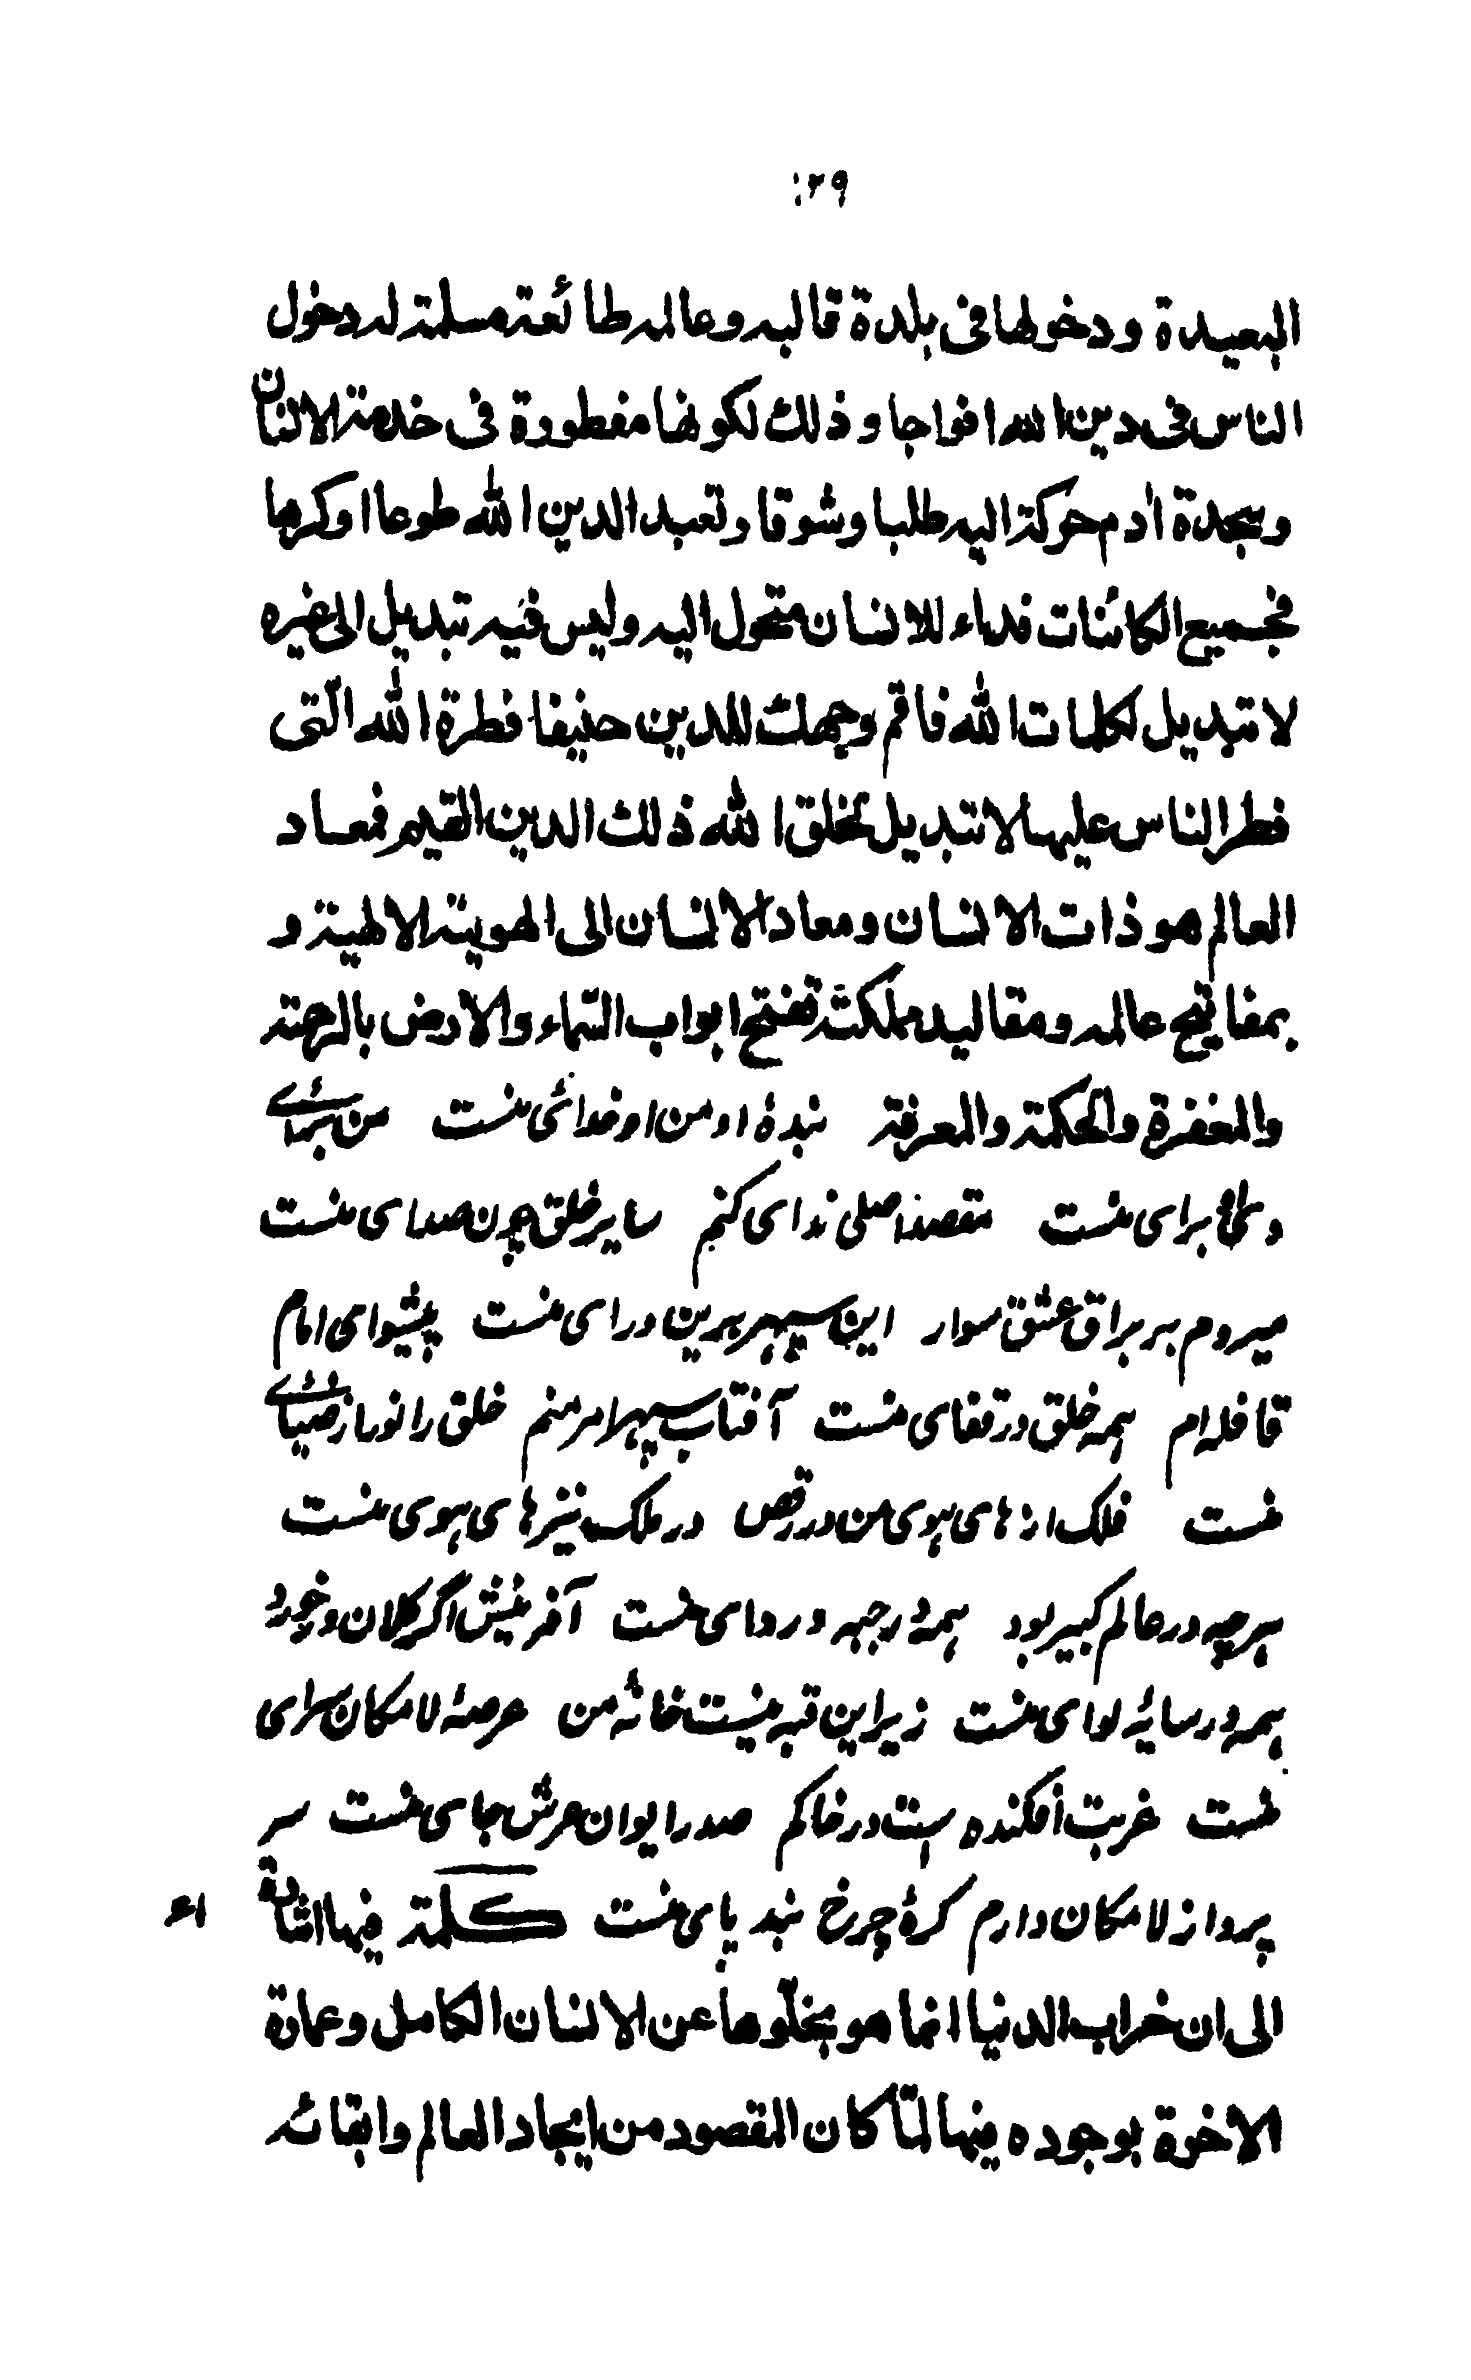 ۱۲۹
البعيدة ودخولها فى بلدة قالبه وعالمه طائعة مسلمة له دخول
الناس فى دين الله افواجا وذلك لكونها مفطورة فى خدمة الانسان
وسجدة ادم حركة اليه طلبا وشوقا وتعبد الدين الله طوعا اوكرها
فجميع الكائنات فداء للانسان متحول اليه وليس فيه تبديل الى غيره
لا تبديل لكلمات الله فاقم وجهك للدين حنيفا فطرة الله الّتى
فطر الناس عليها لا تبديل لخلق الله ذلك الدين القيم فمعاد
العالم هو ذات الانسان ومعاد الانسان الى الهوية الالهية و
بمفاتيح عالمه ومقاليد مملكته تفتح ابواب السّماء والارض بالرحمة
والمغفرة والحكمة والمعرفة بندهٔ او من او خدائى منست من براے
وى برای منست مقصد اصلى ندای كنم ساير خلق چون صدای منست
ميروم بر براق عشق سوار اين سپهر برين درای منست پيشوای امام
قافله ام همه خلق در قفای منست آفتاب سپهر امر منم خلق را نور از ضيائے
منست فلك از های هوی من در رقص در ملك نيز های هوی منست
هرچه در عالم كبير بود همه در جبه و ردای منست آفرينش اگر كلان و خورد
همه در سايهٔ لوای منست زير اين قبه نيست خانهٔ من عرصهٔ لامكان سرای
منست غربت افكنده است در خاكم صدر ايوان عرش جای منست سر
پرواز لامكان دارم كرهٔ چرخ بند پای منست كلمة فيها اشارة
الى ان خراب الدنيا انما هو بخلّوها عن الانسان الكامل وعمارة
الاخرة بوجوده فيها لمّا كان المقصود من ايجاد العالم وابقائه